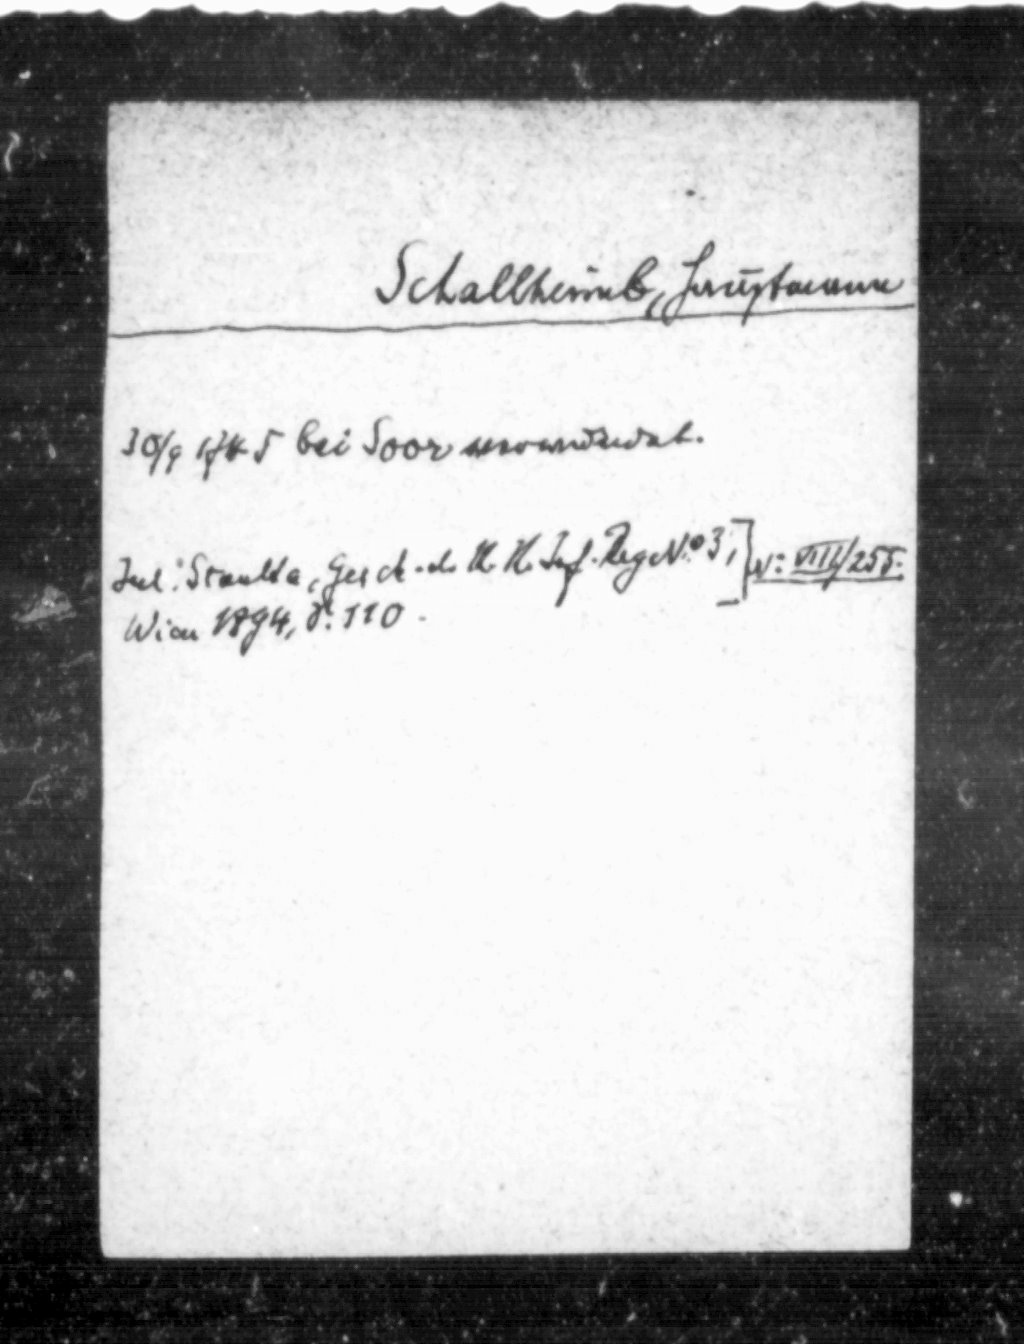 Schallheimb, Hauptmann
30/9 1745 bei Soor verwundet.
Jul. Stanka, Gesch. d. K. K. Inf. Reg. N.º 3,] N: VIII/255.
Wien 1894, S. 110.